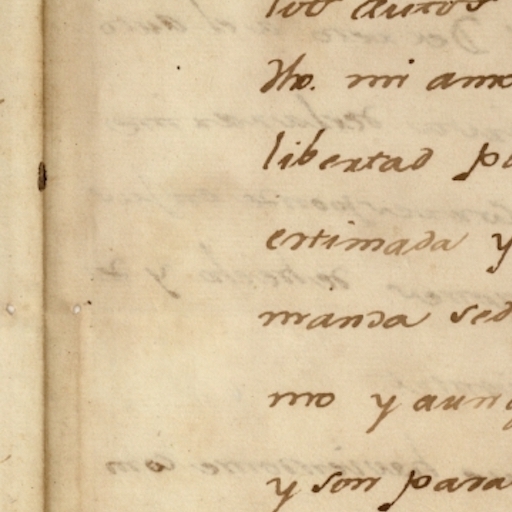 los autos
dho. mi amo
libertad pa
estimada y
manda sed
mo y aunq
y son para